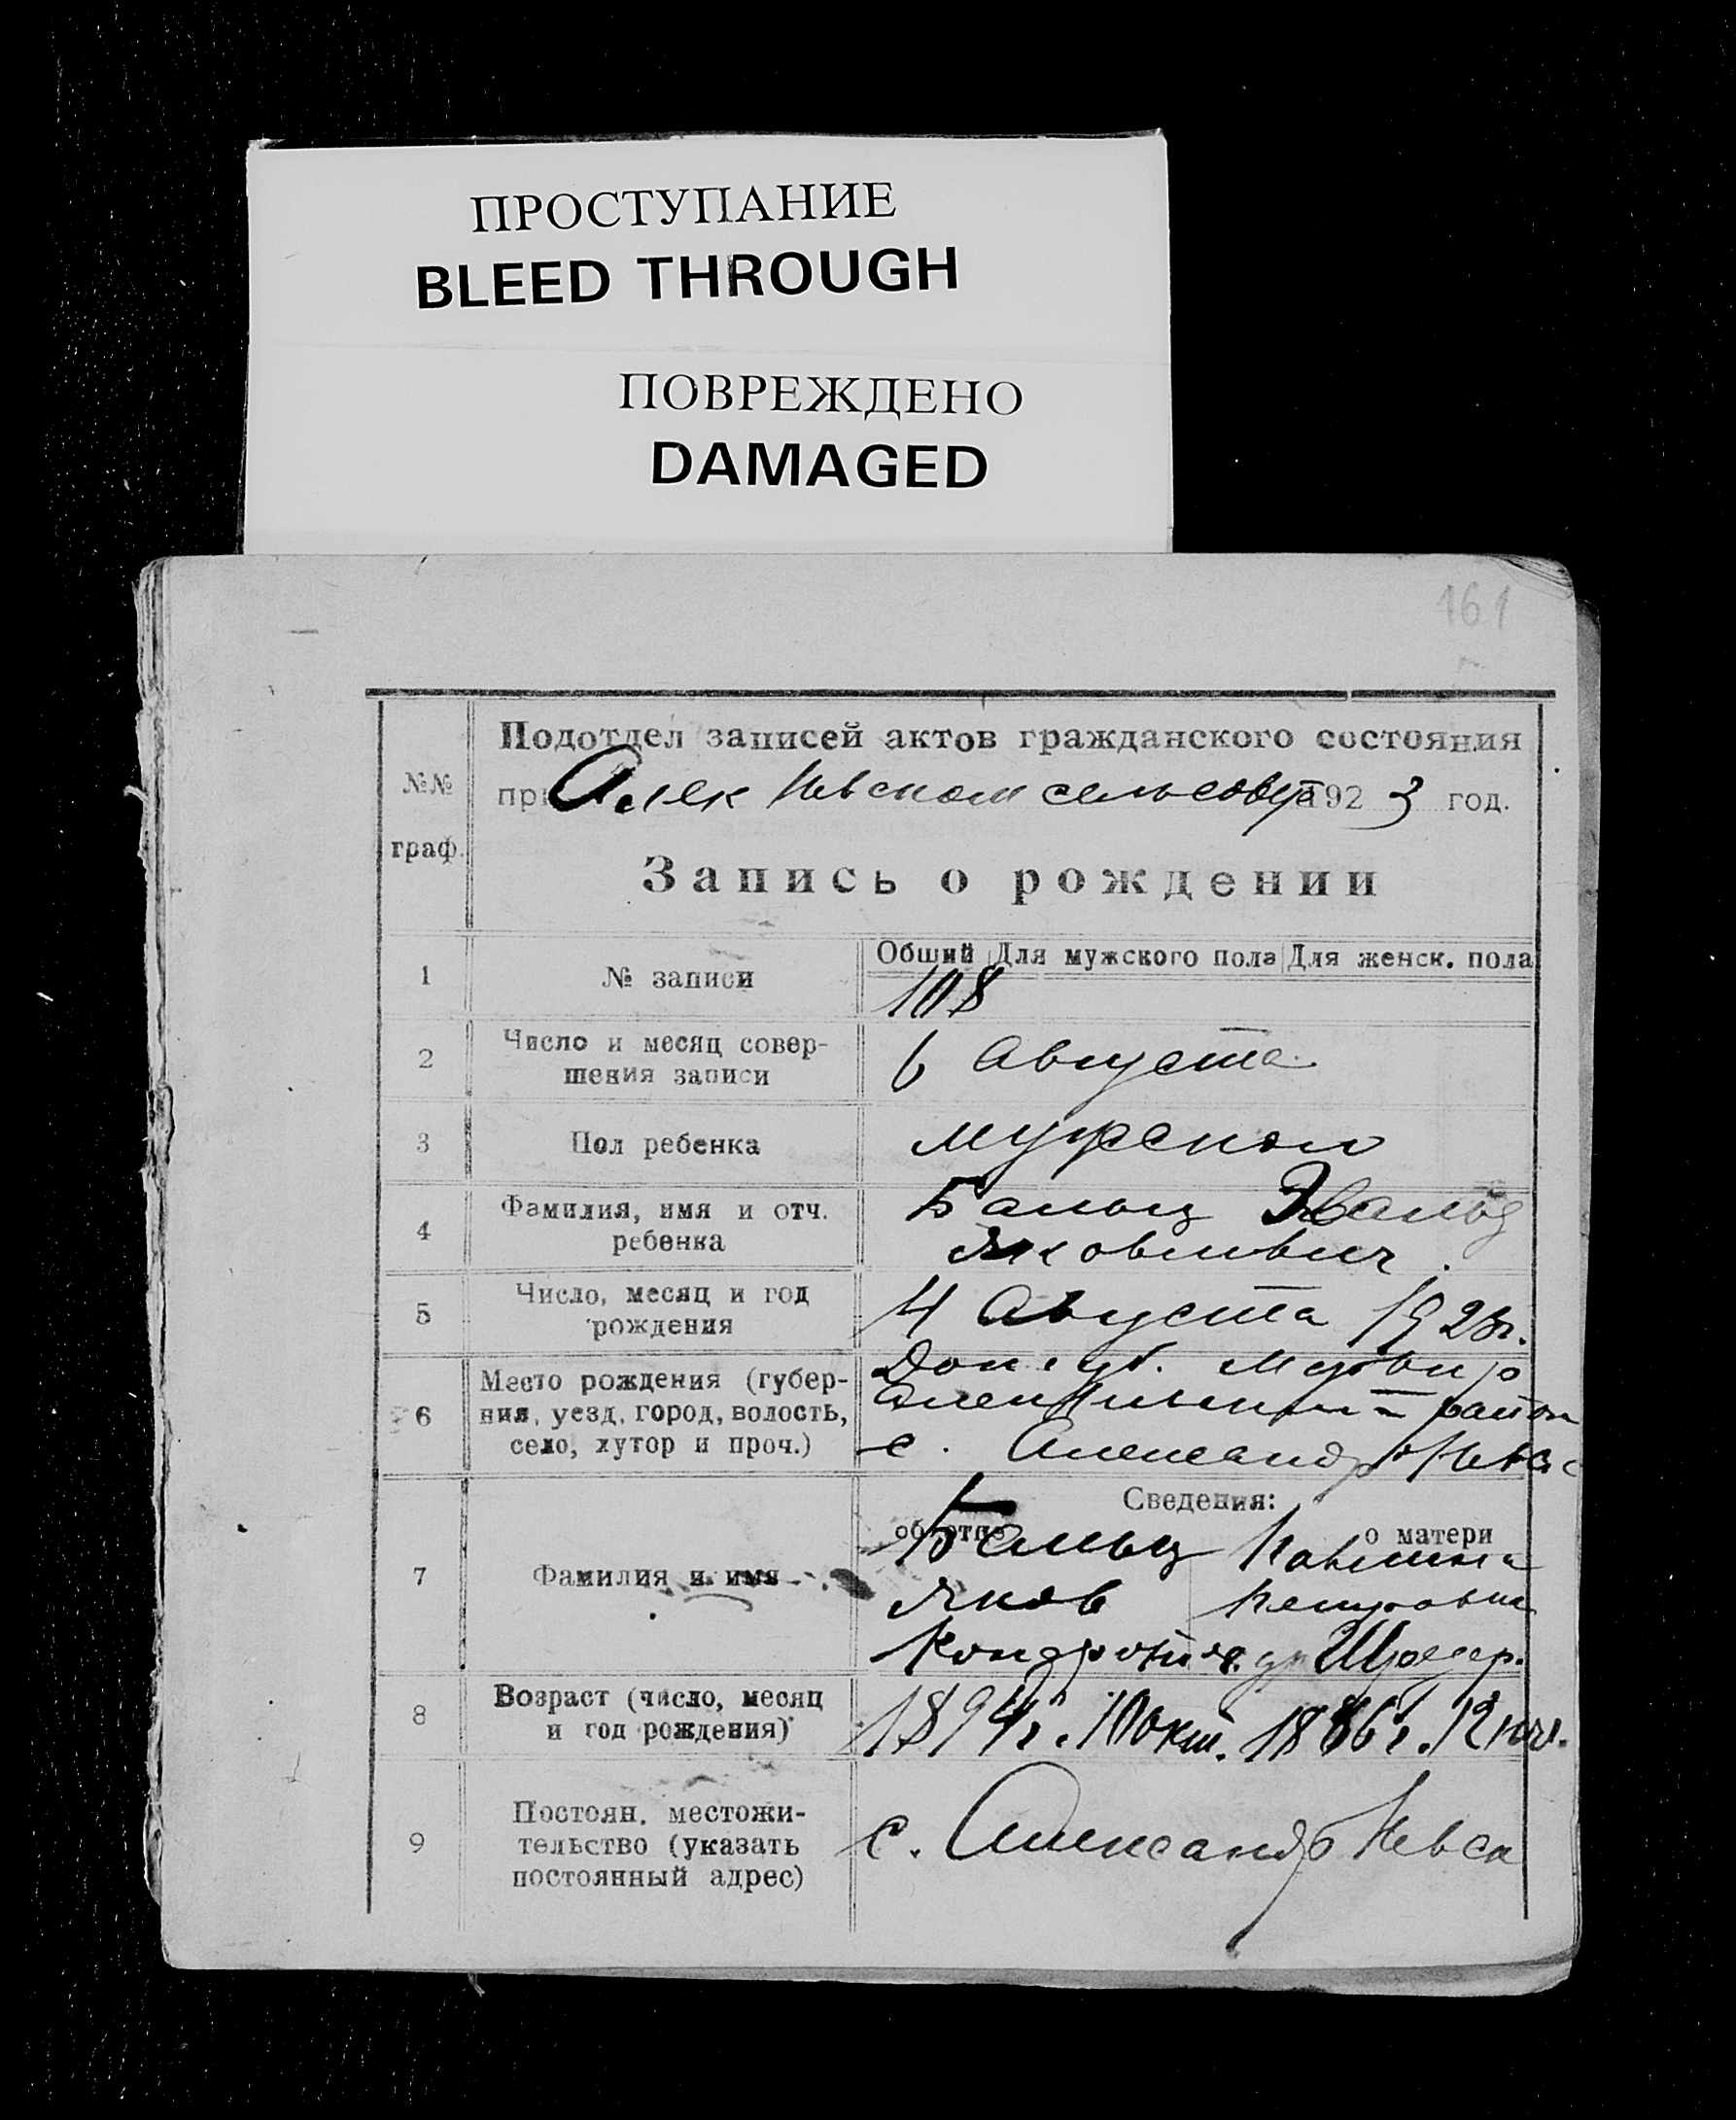 ПРОСТУПАНИЕ
BLEED THROUGH
ПОВРЕЖДЕНО
DAMAGED
161
Подотдел записей актов гражданского состояния
№№
при Алек Невском сельсовете 1923 год.
граф.
Запись о рождении
Общий Для мужского пола Для женск. пола
1 № записи 108
2 Число и месяц совер-
шения записи
6 Августа
3 Пол ребенка мужской
4 Фамилия, имя и отч.
ребенка
Бальц Эвальд
Яковлевич
5 Число, месяц и год
рождения
4 Августа 1923г.
6 Место рождения (губер-
ния, уезд, город, волость,
село, хутор и проч.)
Дон. губ.
район
с. Александро Невск
Сведения:
об отце о матери
7 Фамилия и имя
Бальц
Яков Петровна
Шредер.
8 Возраст (число, месяц
и год рождения)
1894г. 10 окт. 1886г. 12
9 Постоян. местожи-
тельство (указать
постоянный адрес)
с. Александро Невск